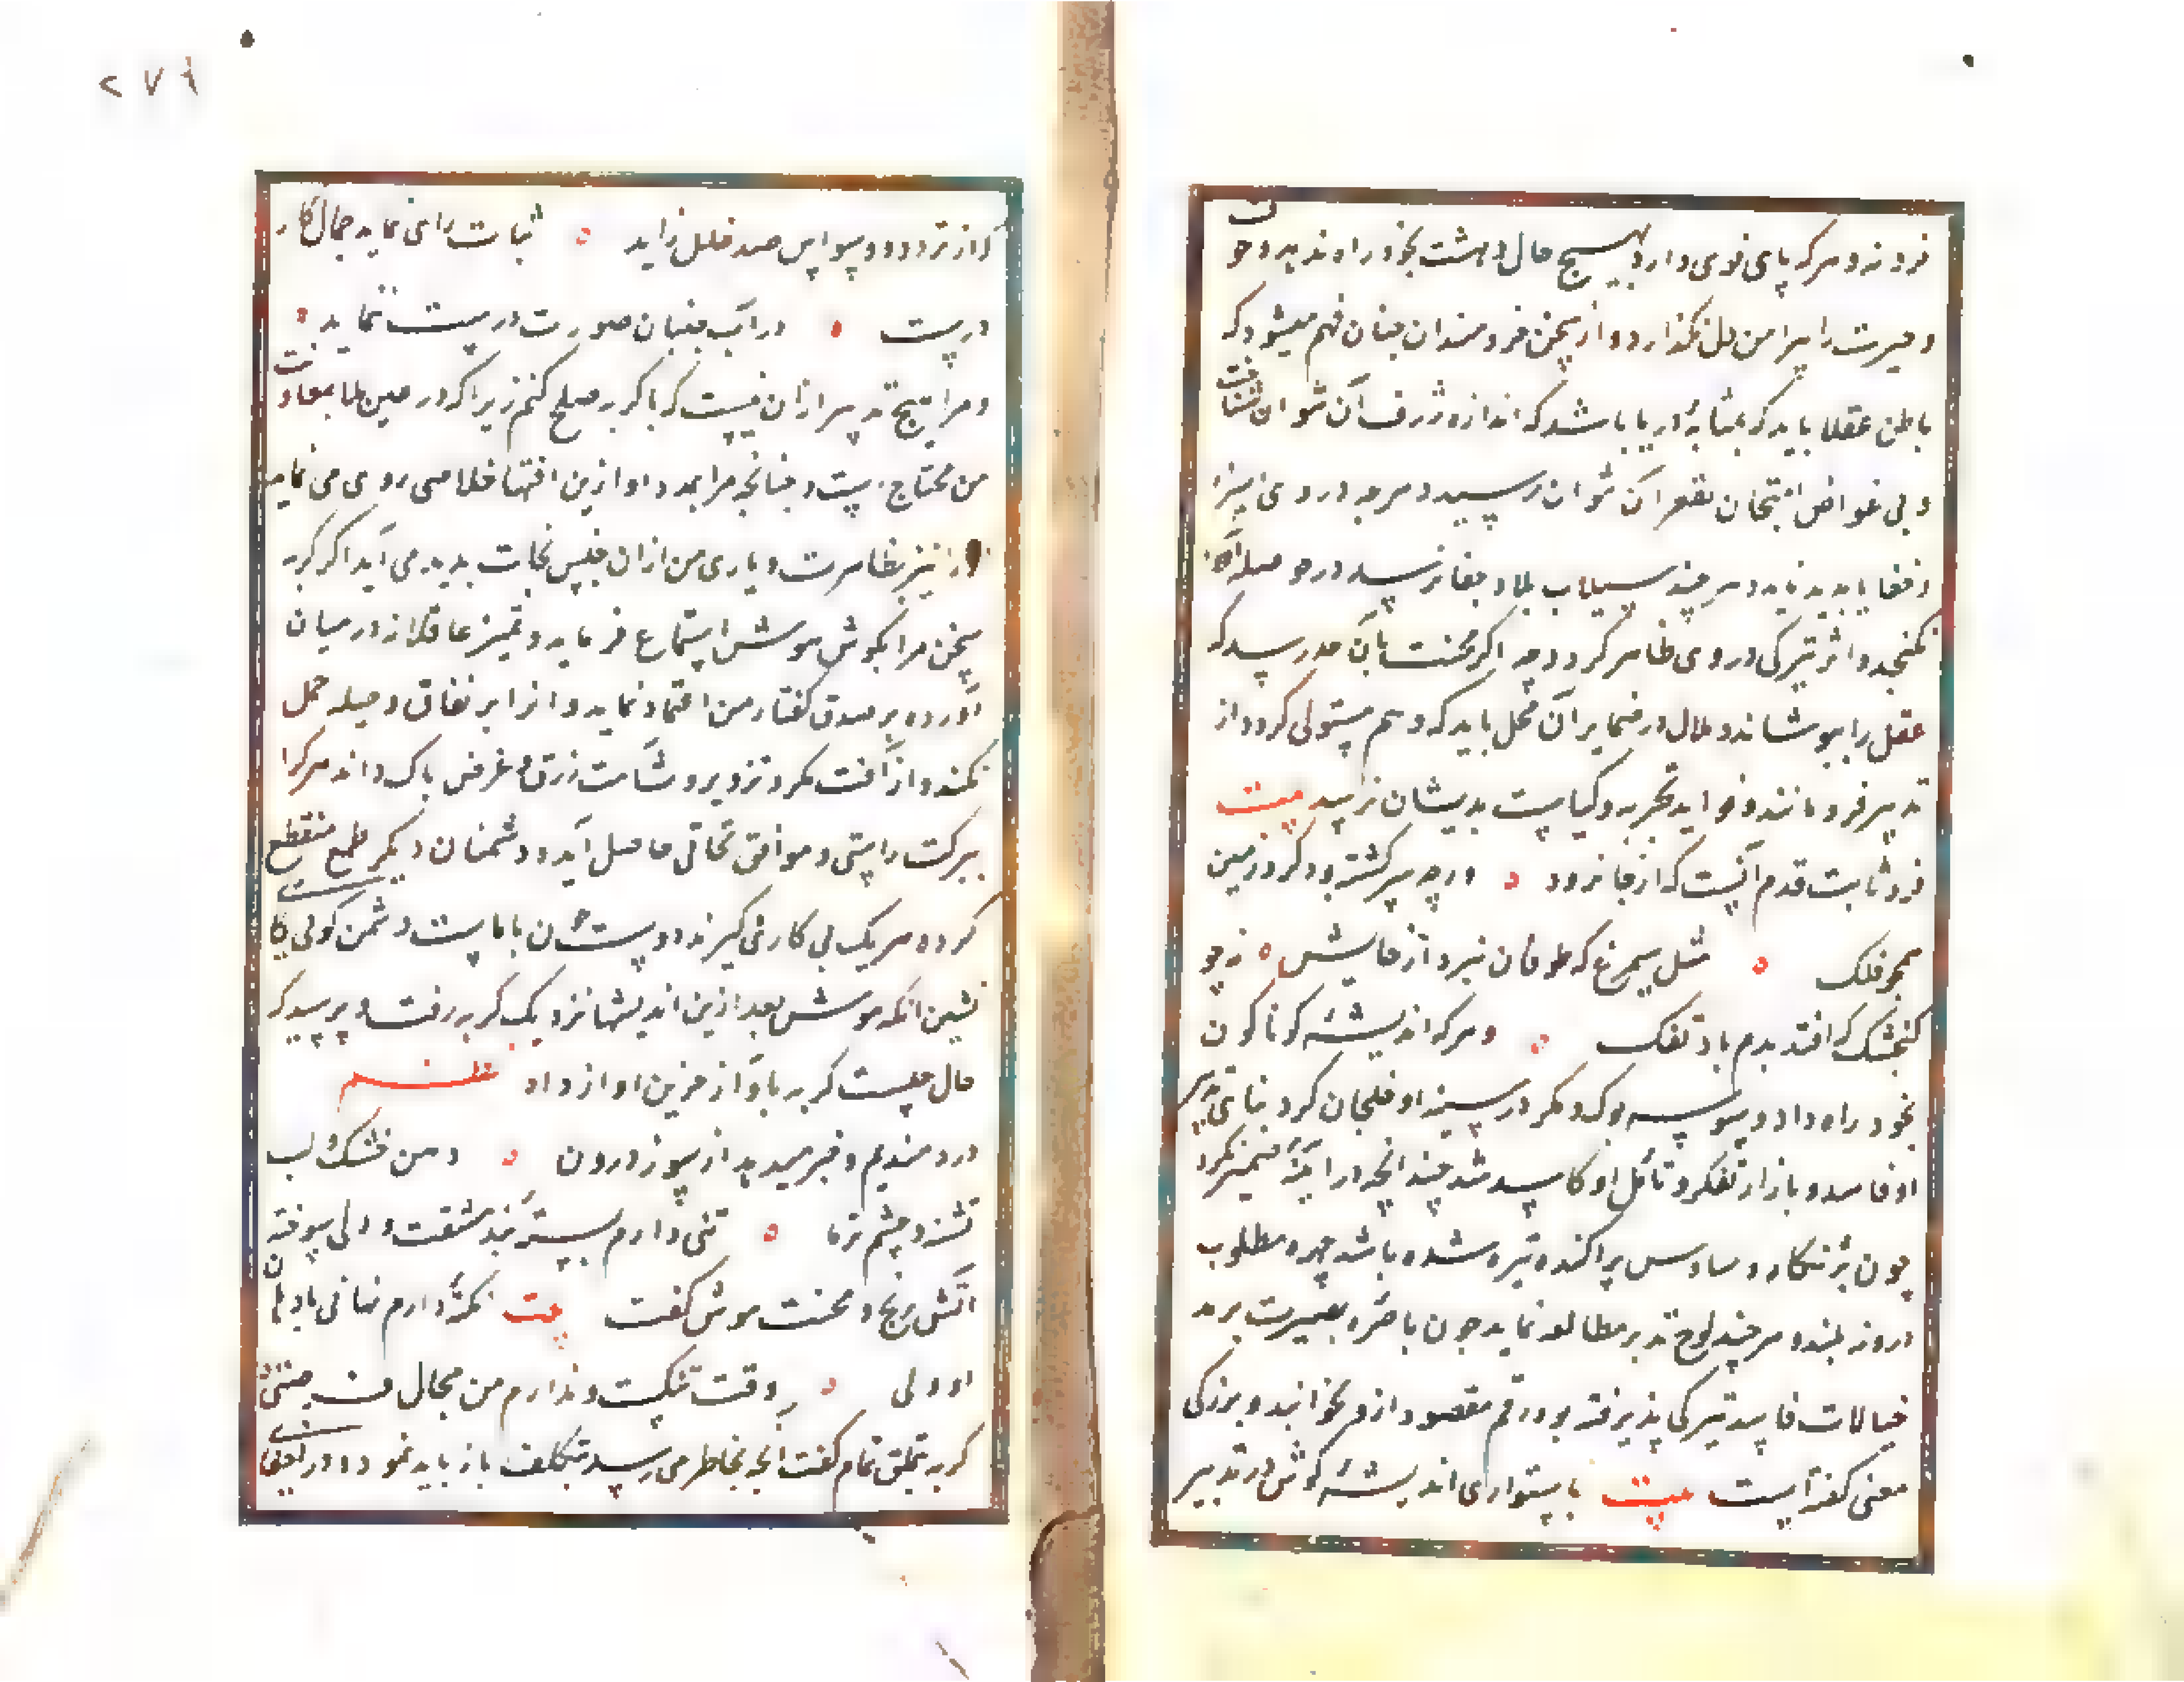 خرد نه و هر که پای قوی دارد بهیچ حال دهشت بخود راه ندهد و خوف
و حیرت را پیرامن دل نگذارد و از سخن خردمندان چنان فهم میشود که
باطن عقلا باید که بمثابهٔ دریا باشد که اندازه ژرف آن نتوان شناخت
و بی غواص امتحان بقعر آن نتوان رسید و هرچه در وی
و خفایا پدید نیاید و هر چند سیلاب بلا و جفا برسد در حوصله آن
نگنجد و اثر تیرگی در وی ظاهر نگردد چه اگر محنت بآن حد رسد که
عقل را بپوشاند و ملال در ضمایر آن محل یابد که وهم مستولی گردد از
تدبیر فرو مانند و فواید تجربه و کیاست بدیشان نرسد بیت
مرد ثابت قدم آنست که از جا نرود ورچه سرگشته بود گرد زمین
همچو فلک مثل سیمرغ که طوفان نبرد از جایش نه چو
گنجشک که افتد بدم باد تفک و هر که اندیشه گوناگون
بخود راه داد و وسوسه بوک و مگر در سینه او خلجان کرد
او فاسد و بازار تفکر و تأمل او کاسد شد چنانچه در آینه
چون بزنگار وساوس پراکنده تیره شده باشد چهره مطلوب
درو نه بیند و هر چند لوح تدبر مطالعه نماید چون باصره بصیرت برمد
خیالات فاسد تیرگی پذیرفته بود رقم مقصود ازو نخواند و بزرگی
معنی گفته است بیت باستواری اندیشه کوش در تدبیر
که از تردد و وسواس صد خلل زاید ثبات رای نماید جمال کار
درست در آب جنبان صورت درست ننماید
و مرا هیچ تدبیر ازان نیست که با گربه صلح کنم زیرا که در عین بلا بمعاونت
من محتاجست و چنانچه مرا بمدد او ازین آفتها خلاصی روی می نماید
او را نیز بمظاهرت و یاری من ازان حبس نجات پدید می آید اگر گربه
سخن مرا بگوش هوش استماع فرماید و تمیز عاقلانه در میان
آورده بر صدق گفتار من اعتماد نماید و آنرا بر نفاق و حیله حمل
نکند و از آفت مکر و تزویر و شآمت زرق و غرض پاک داند هر که را
ببرکت راستی و موافقت نجاتی حاصل آید و دشمنان دیگر طمع منقطع
کرده هر یک پی کاری گیرند دوست شادان با ماست دشمن گو پی کار
نشین آنگه موش بعد ازین اندیشها نزدیک گربه رفت و پرسید که
حال چیست گربه بآواز حزین آواز داد نظـم
دردمندیم و خبر میدهد از سوز درون دهن خشک و لب
تشنه و چشم تر ما تنی دارم بسته بند مشقت و دلی سوخته
آتش رنج و محنت موش گفت بیت نکتهٔ دارم نهانی با دهان
او ولی وقت تنگست و ندارم من مجال فرصتی
گربه بتملق تمام گفت آنچه بخاطر می رسد بی تکلف باز باید نمود و در اخفای
۲۷۶